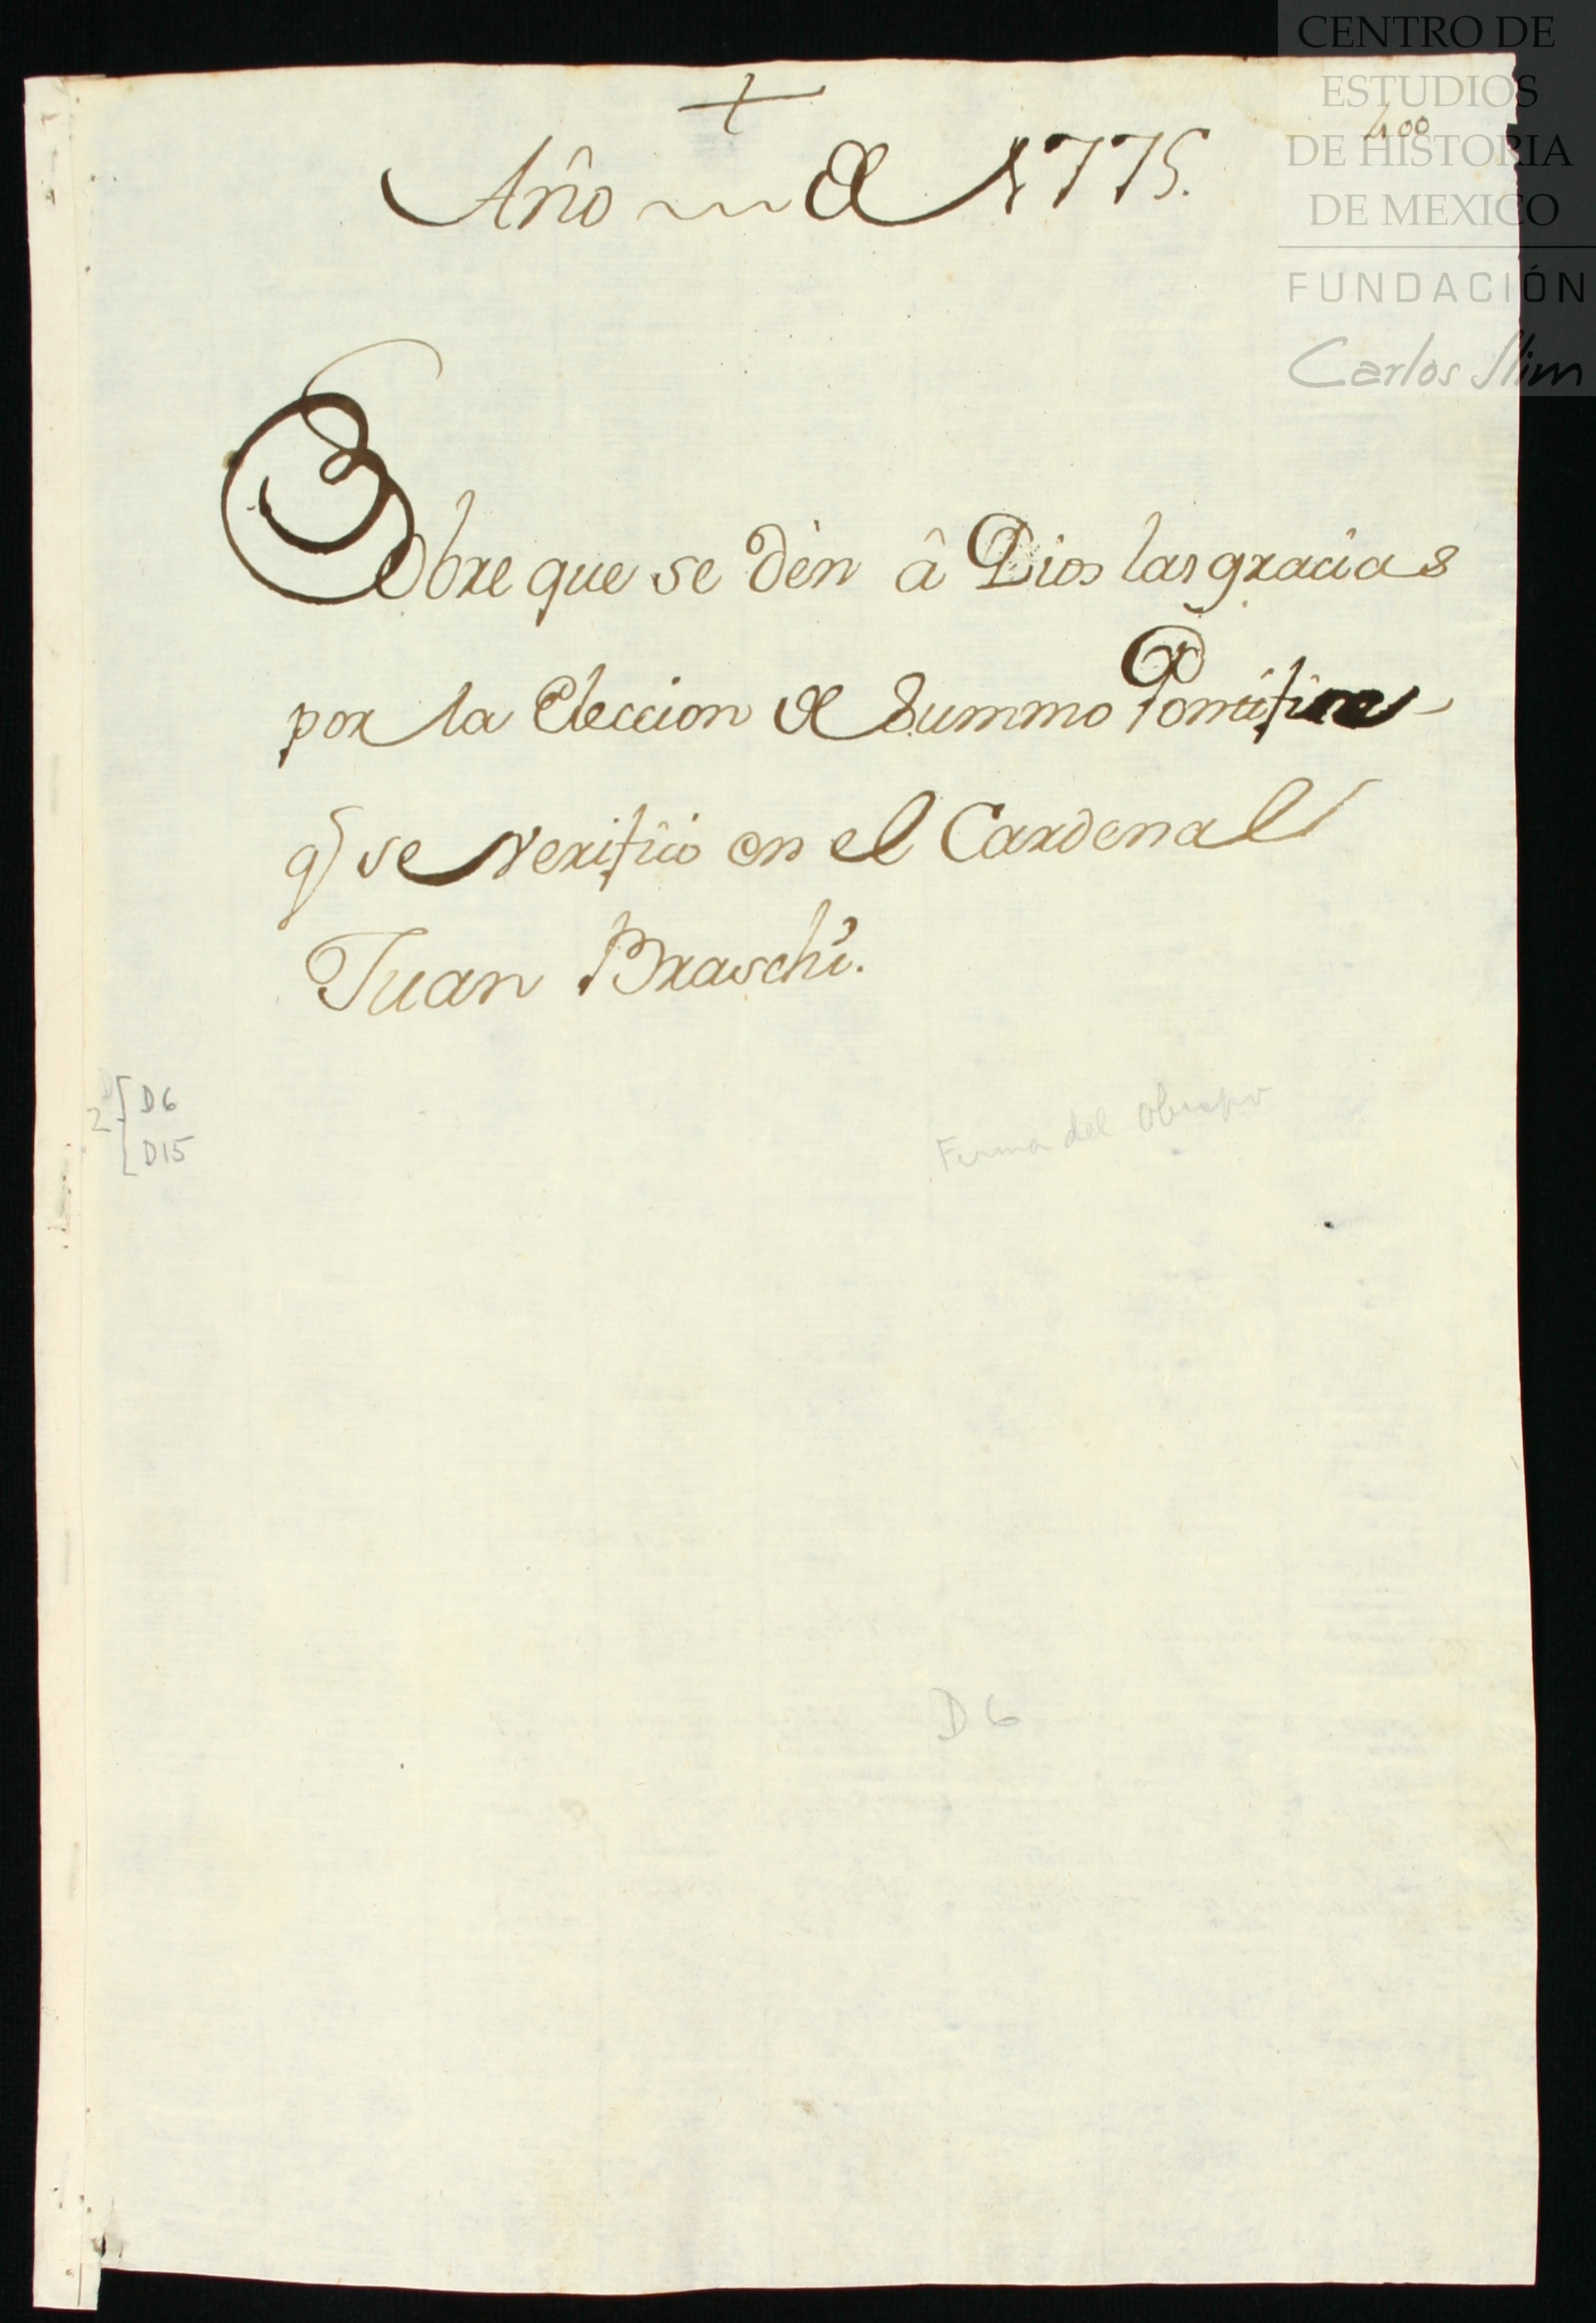 CENTRO DE
ESTUDIOS
DE HISTORIA
DE MEXICO
FUNDACIÓN
Carlos Slim
400
Año de 1775.
Sobre que se dèn â Dios las gracias
por la Eleccion de Summo Pontifice
q̃ se verificó en el Cardenal
Juan Braschî.
2 D6
D15
Firma del Obispo
D6